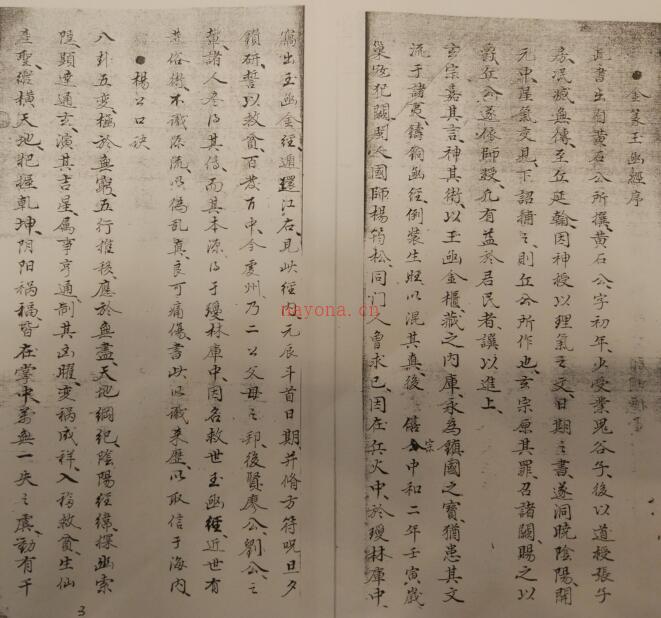 金篆玉函經序
此書出自黄石公所撰黄石公字初年少受業鬼谷子後以道授張子
房况滅無傳至丘延翰因神授以理氣之文日期之書遂洞曉陰陽開
元中星氣交見下詔捕之則丘公所作也玄宗原其罪召諸闕賜之以
爵丘公遂條師授凡有益於居民者譔以進上
玄宗嘉其言神其術以玉函金櫃藏之内庫永為鎮國之寶猶患其文
流于諸夷鑄銅函經例裝生旺以混其真後 僖宗中和二年壬寅歲
巢寇犯闕國師楊筠松同門人曾求已因在兵火中於瓊林庫中
竊出玉函金經通環江右見此經内元辰斗首日期并脩方符呪旦夕
鑽研誓以救貧百發百中今虔州乃二公父母之邦後賢廖公劉公之
輩諸人各得其傳而其本源得于瓊林庫中因名救世玉函經近世有
業俗術不識源流以偽乱真良可痛傷書此以識来歷以取信于海内
楊公口诀
八卦五变極於無窮五行推移應於無盡天地綱紀陰陽經緯探幽索
隐顕達通玄演其吉星属事亨通制其凶曜变祸成祥入福救貧生仙
產聖縱橫天地把握乾坤阴阳祸福皆在掌中萬無一失之虞動有千
3
nayona.cn